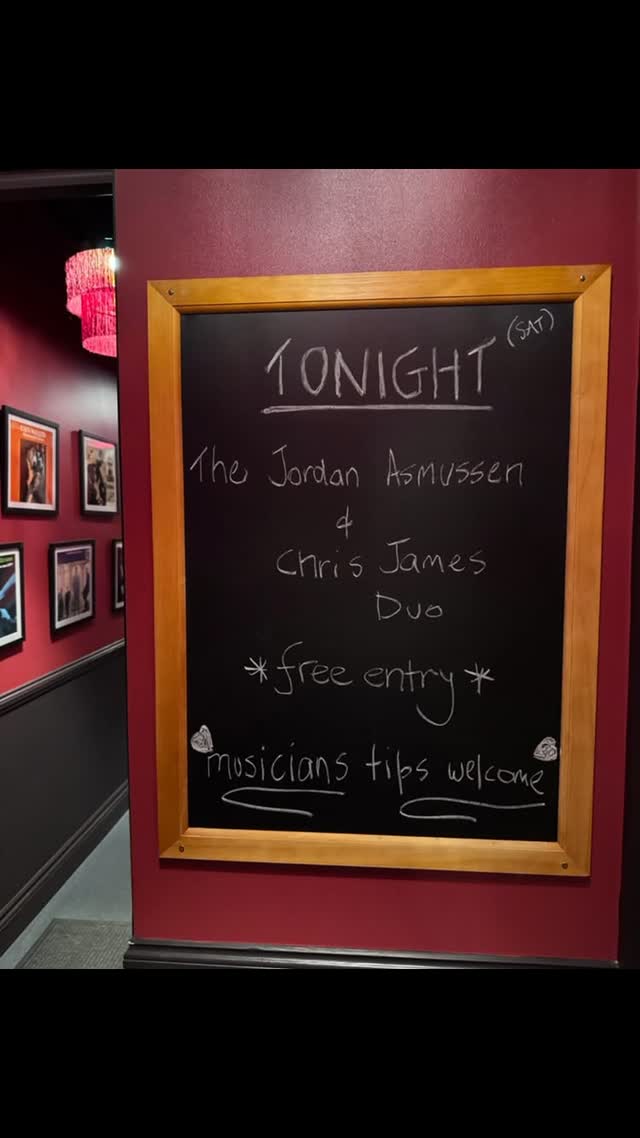 TONIGHT (SAT)
The Jordan Asmussen
&
Chris James
Duo
*free entry*
musicians tips welcome